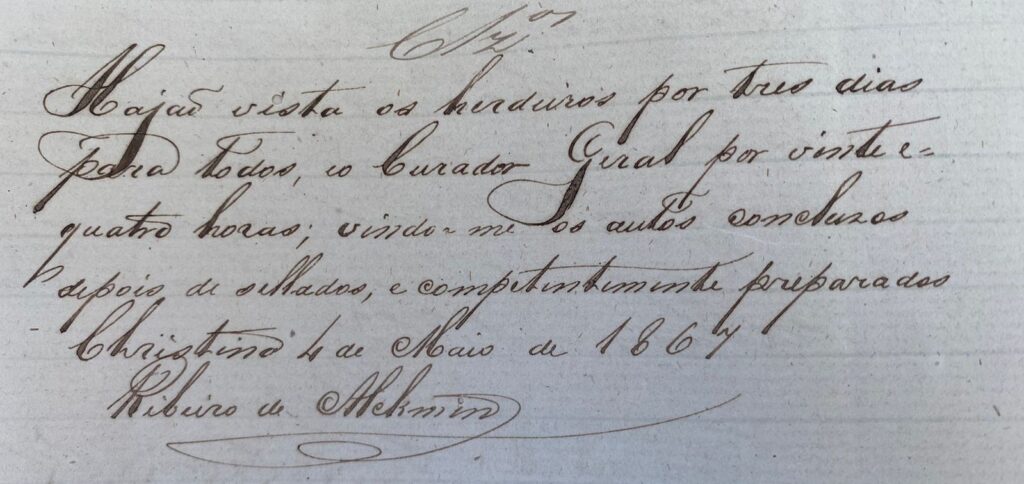 Clz.os
Hajaõ vista os herdeiros por tres dias
para todos, eo Curador Geral por vinte e=
quatro horas; vindo-me os autos concluzos
depois de sellados, e competentemente preparados
Christina 4 de Maio de 1867
Ribeiro de Alckmin